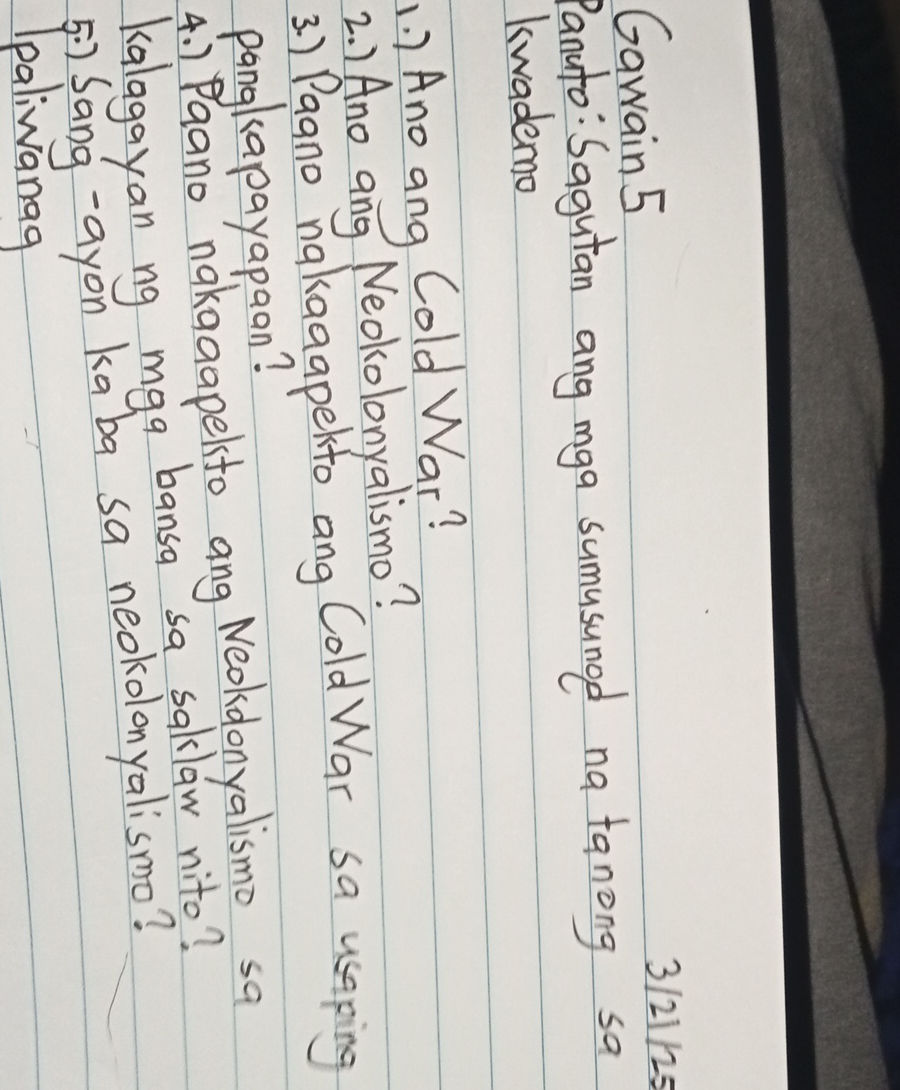 3/21/25
Gawain 5
Panuto: Sagutan ang mga sumusunod na tanong sa
kwaderno
1.) Ano ang Cold War?
2.) Ano ang Neokolonyalismo?
3.) Paano nakaaapekto ang Cold War sa usaping
pangkapayapaan?
4.) Paano nakaaapekto ang Neokolonyalismo sa
kalagayan ng mga bansa sa saklaw nito?
5.) Sang-ayon ka ba sa neokolonyalismo?
Ipaliwanag